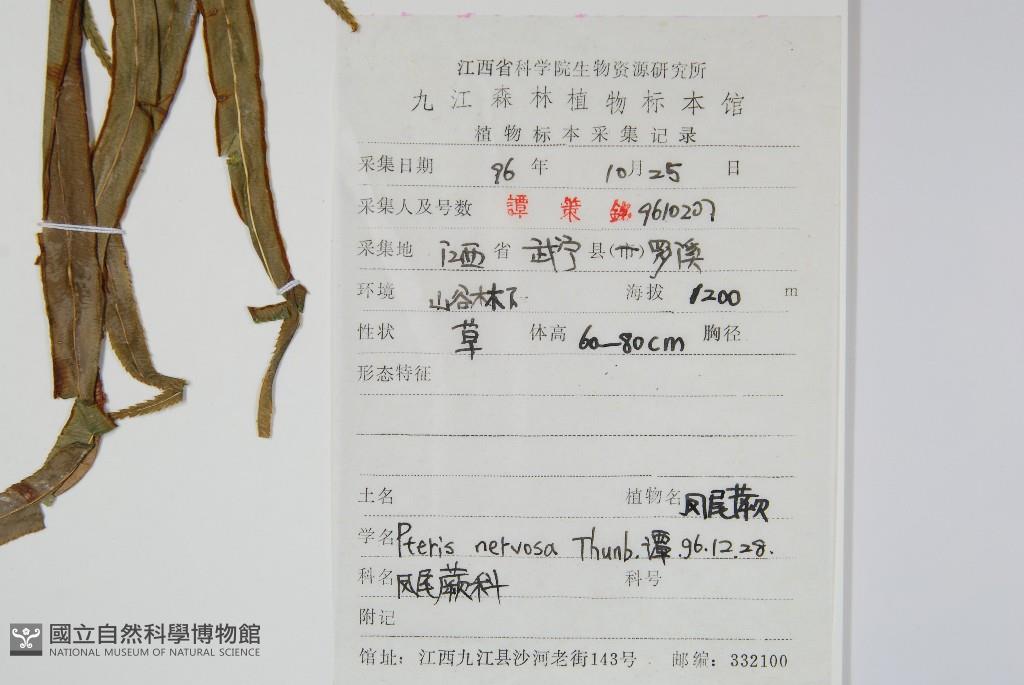 江西省科学院生物资源研究所
九江森林植物标本馆
植物标本采集记录
采集日期 96 年 10 月 25 日
采集人及号数 譚策銘 9610207
采集地 江西 省 武宁 县(市) 罗溪
环境 山谷林下 海拔 1200 m
性状 草 体高 60—80cm 胸径
形态特征
土名 植物名 凤尾蕨
学名 Pteris nervosa Thunb. 谭. 96.12.28.
科名 凤尾蕨科 科号
附记
馆址：江西九江县沙河老街143号 邮编：332100
國立自然科學博物館
NATIONAL MUSEUM OF NATURAL SCIENCE